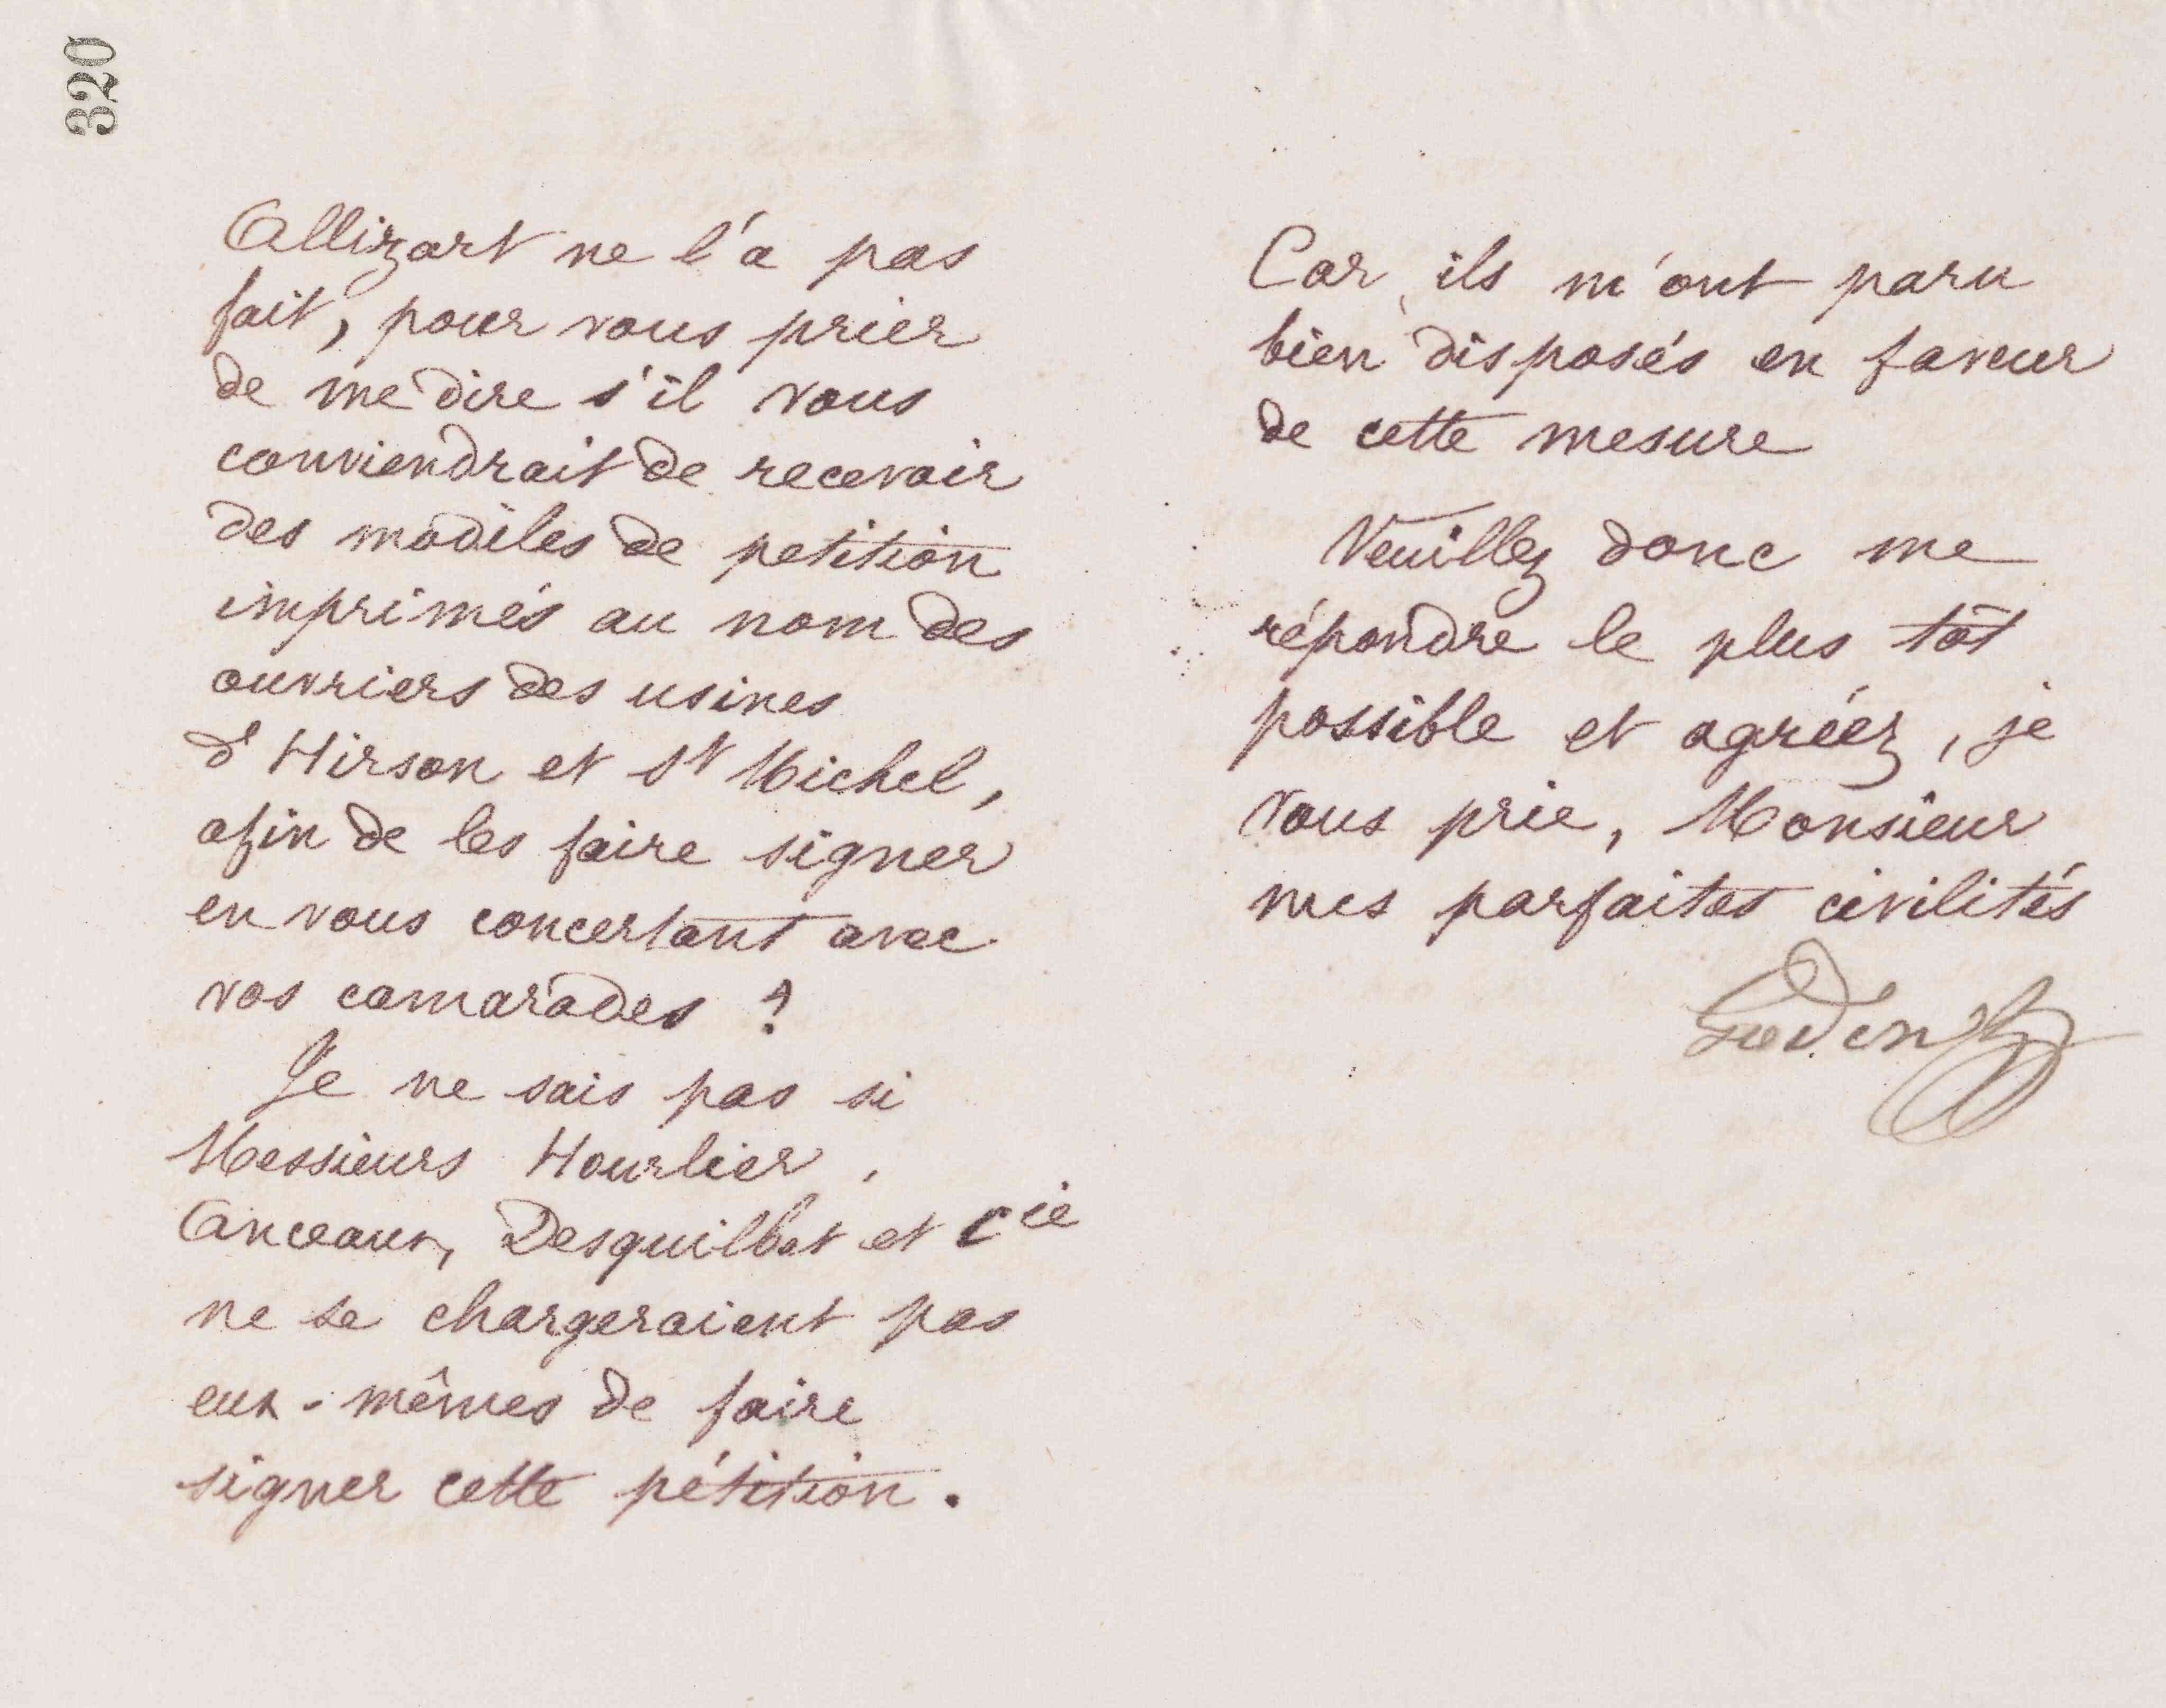 320
Allizart ne l'a pas
fait, pour vous prier
de me dire s'il vous
conviendrait de recevoir
des modèles de petition
imprimés au nom des
ouvriers des usines
d'Hirson et St Michel,
afin de les faire signer
en vous concertant avec
vos camarades ?
Je ne sais pas si
Messieurs Hourlier,
Anceaux, Desquilbet et Cie
ne se chargeraient pas
eux-mêmes de faire
signer cette pétition.
Car, ils m'ont paru
bien disposés en faveur
de cette mesure
Veuillez donc me
répondre le plus tôt
possible et agréez, je
vous prie, Monsieur
mes parfaites civilités
Godin